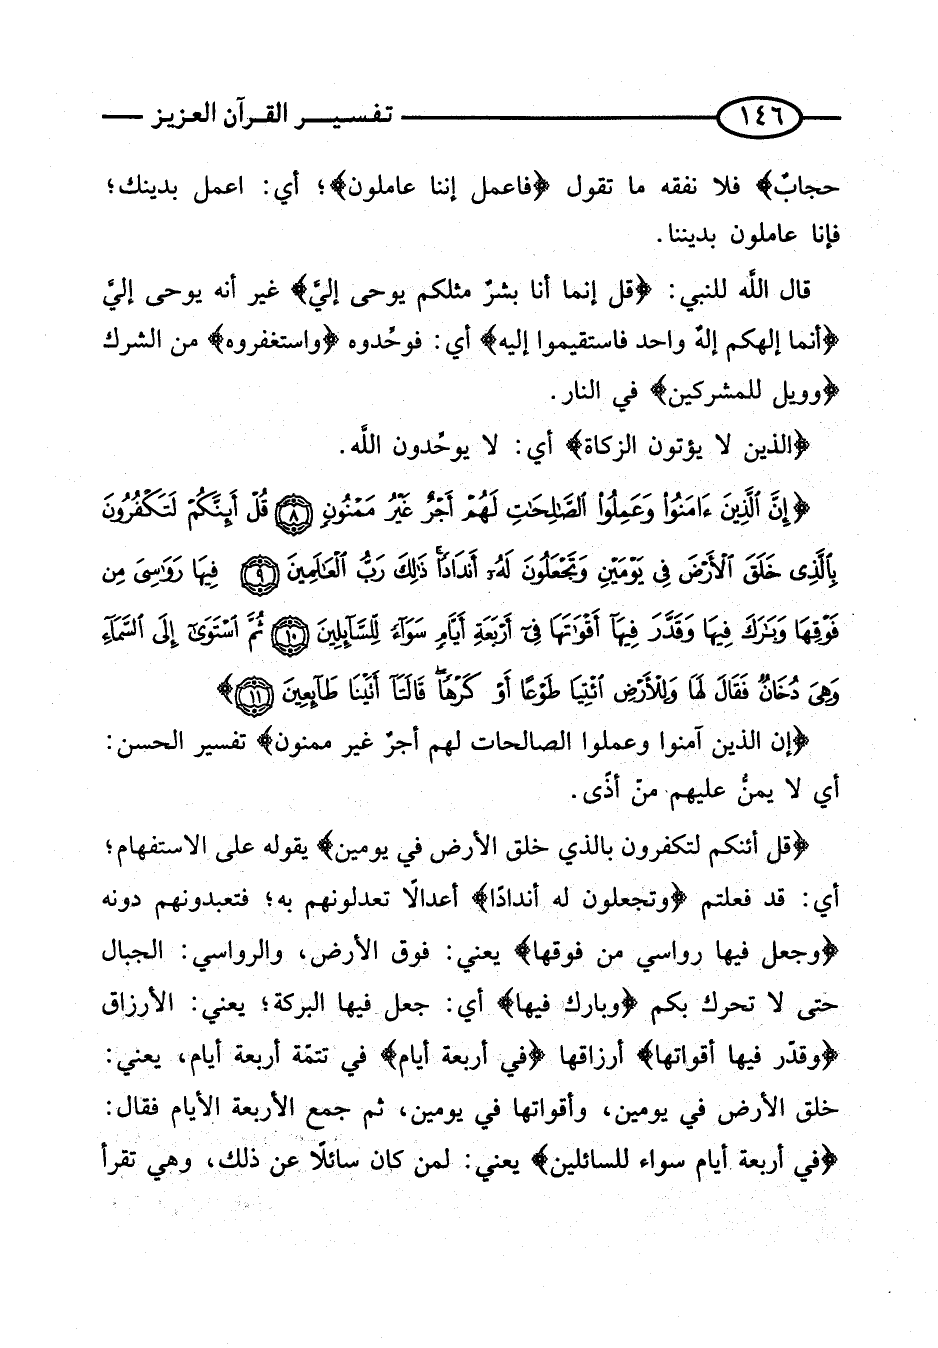 ١٤٦ تفسير القرآن العزيز
حجابٌ﴾ فلا نفقه ما تقول ﴿فاعمل إننا عاملون﴾؛ أي: اعمل بدينك؛
فإنا عاملون بديننا.
قال اللَّه للنبي: ﴿قل إنما أنا بشرٌ مثلكم يوحى إليَّ﴾ غير أنه يوحى إليَّ
﴿أنما إلهكم إلهٌ واحد فاستقيموا إليه﴾ أي: فوحِّدوه ﴿واستغفروه﴾ من الشرك
﴿وويل للمشركين﴾ في النار.
﴿الذين لا يؤتون الزكاة﴾ أي: لا يوحِّدون اللَّه.
﴿إِنَّ ٱلَّذِينَ ءَامَنُوا۟ وَعَمِلُوا۟ ٱلصَّـٰلِحَـٰتِ لَهُمْ أَجْرٌ غَيْرُ مَمْنُونٍ ٨ قُلْ أَئِنَّكُمْ لَتَكْفُرُونَ
بِٱلَّذِى خَلَقَ ٱلْأَرْضَ فِى يَوْمَيْنِ وَتَجْعَلُونَ لَهُۥٓ أَندَادًا ۚ ذَٰلِكَ رَبُّ ٱلْعَـٰلَمِينَ ٩ فِيهَا رَوَٰسِىَ مِن
فَوْقِهَا وَبَـٰرَكَ فِيهَا وَقَدَّرَ فِيهَآ أَقْوَٰتَهَا فِىٓ أَرْبَعَةِ أَيَّامٍ سَوَآءً لِّلسَّآئِلِينَ ١٠ ثُمَّ ٱسْتَوَىٰٓ إِلَى ٱلسَّمَآءِ
وَهِىَ دُخَانٌ فَقَالَ لَهَا وَلِلْأَرْضِ ٱئْتِيَا طَوْعًا أَوْ كَرْهًا ۖ قَالَتَآ أَتَيْنَا طَآئِعِينَ ١١﴾
﴿إن الذين آمنوا وعملوا الصالحات لهم أجرٌ غير ممنون﴾ تفسير الحسن:
أي لا يمنُّ عليهم منّ أذًى.
﴿قل أئنكم لتكفرون بالذي خلق الأرض في يومين﴾ يقوله على الاستفهام؛
أي: قد فعلتم ﴿وتجعلون له أندادًا﴾ أعدالًا تعدلونهم به؛ فتعبدونهم دونه
﴿وجعل فيها رواسي من فوقها﴾ يعني: فوق الأرض، والرواسي: الجبال
حتى لا تحرك بكم ﴿وبارك فيها﴾ أي: جعل فيها البركة؛ يعني: الأرزاق
﴿وقدّر فيها أقواتها﴾ أرزاقها ﴿في أربعة أيام﴾ في تتمّة أربعة أيام، يعني:
خلق الأرض في يومين، وأقواتها في يومين، ثم جمع الأربعة الأيام فقال:
﴿في أربعة أيام سواء للسائلين﴾ يعني: لمن كان سائلًا عن ذلك، وهي تقرأ